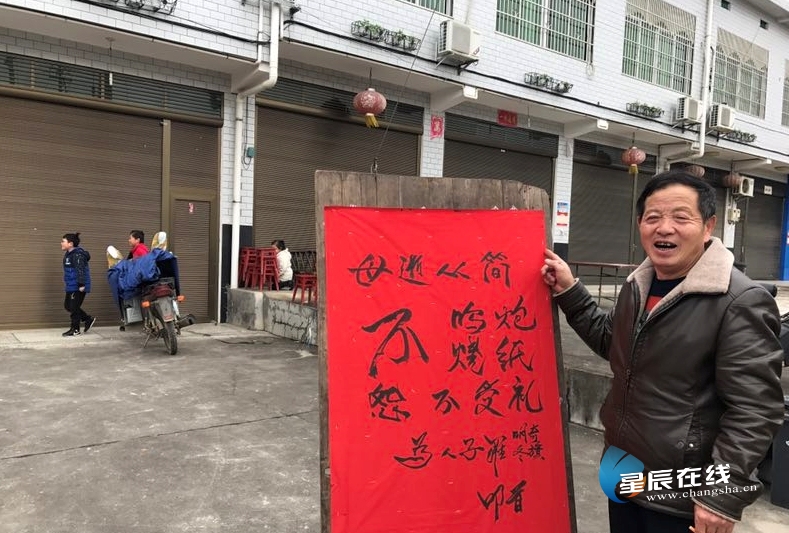 母逝从简
不鸣炮
烧纸
恕不受礼
为人子罗明奇
冬旗
叩首
星辰在线
www.changsha.cn